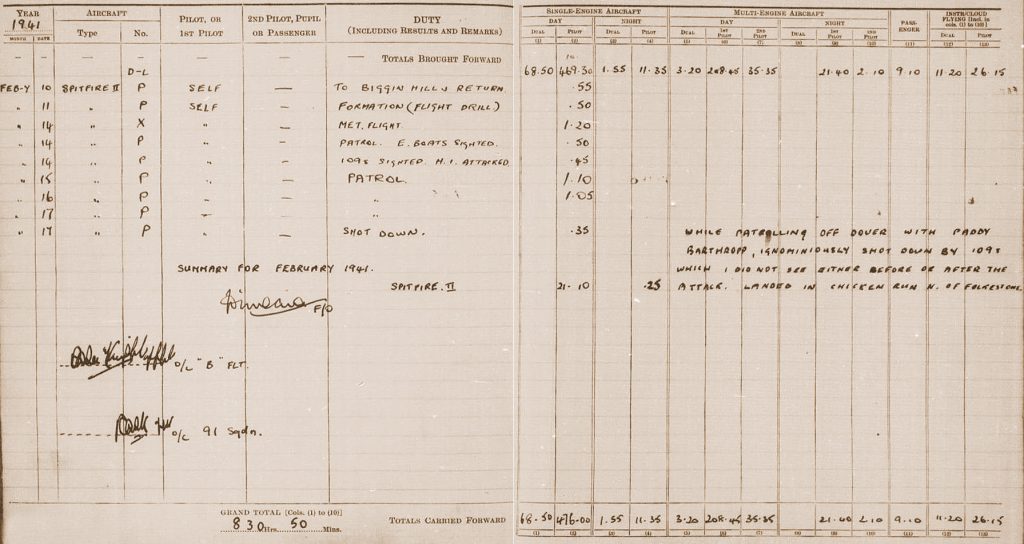 YEAR AIRCRAFT PILOT, OR 2ND PILOT, PUPIL DUTY
1941 Type No. 1ST PILOT OR PASSENGER (INCLUDING RESULTS AND REMARKS)
MONTH DATE
— — — — — — — TOTALS BROUGHT FORWARD
D-L
FEB-Y 10 SPITFIRE II P SELF — TO BIGGIN HILL & RETURN.
" 11 " P SELF — FORMATION (FLIGHT DRILL)
" 14 " X " — MET. FLIGHT.
" 14 " P " — PATROL. E. BOATS SIGHTED.
" 14 " P " — 109s SIGHTED. H.I. ATTACKED.
" 15 " P " — PATROL.
" 16 " P " — "
" 17 " P " — "
" 17 " P " — SHOT DOWN.
SUMMARY FOR FEBRUARY 1941.
SPITFIRE. II
F/O
O/C "B" FLT.
O/C 91 Sqdn.
GRAND TOTAL [Cols. (1) to (10)]
830 Hrs. 50 Mins.
TOTALS CARRIED FORWARD
SINGLE-ENGINE AIRCRAFT MULTI-ENGINE AIRCRAFT PASS-ENGER INSTR/CLOUD FLYING [Incl. in cols. (1) to (10)]
DAY NIGHT DAY NIGHT
DUAL PILOT DUAL PILOT DUAL 1ST PILOT 2ND PILOT DUAL 1ST PILOT 2ND PILOT DUAL PILOT
(1) (2) (3) (4) (5) (6) (7) (8) (9) (10) (11) (12) (13)
68.50 469.30 1.55 11.35 3.20 208.45 35.35 21.40 2.10 9.10 11.20 26.15
.55
.50
1.20
.50
.45
1.10
1.05
.35 WHILE PATROLLING OFF DOVER WITH PADDY
BARTHROPP, IGNOMINIOUSLY SHOT DOWN BY 109s
WHICH I DID NOT SEE EITHER BEFORE OR AFTER THE
21.10 .25 ATTACK. LANDED IN CHICKEN RUN N. OF FOLKESTONE.
68.50 476.00 1.55 11.35 3.20 208.45 35.35 21.40 2.10 9.10 11.20 26.15
(1) (2) (3) (4) (5) (6) (7) (8) (9) (10) (11) (12) (13)